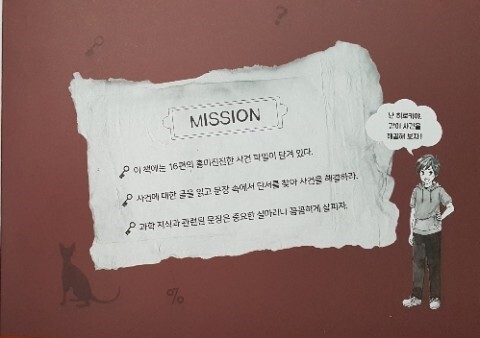 ?
MISSION
이 책에는 16편의 흥미진진한 사건 파일이 담겨 있다.
사건에 대한 글을 읽고 문장 속에서 단서를 찾아 사건을 해결하라.
과학 지식과 관련된 문장은 중요한 실마리니 꼼꼼하게 살피자.
난 히로키야.
같이 사건을
해결해 보자!
%